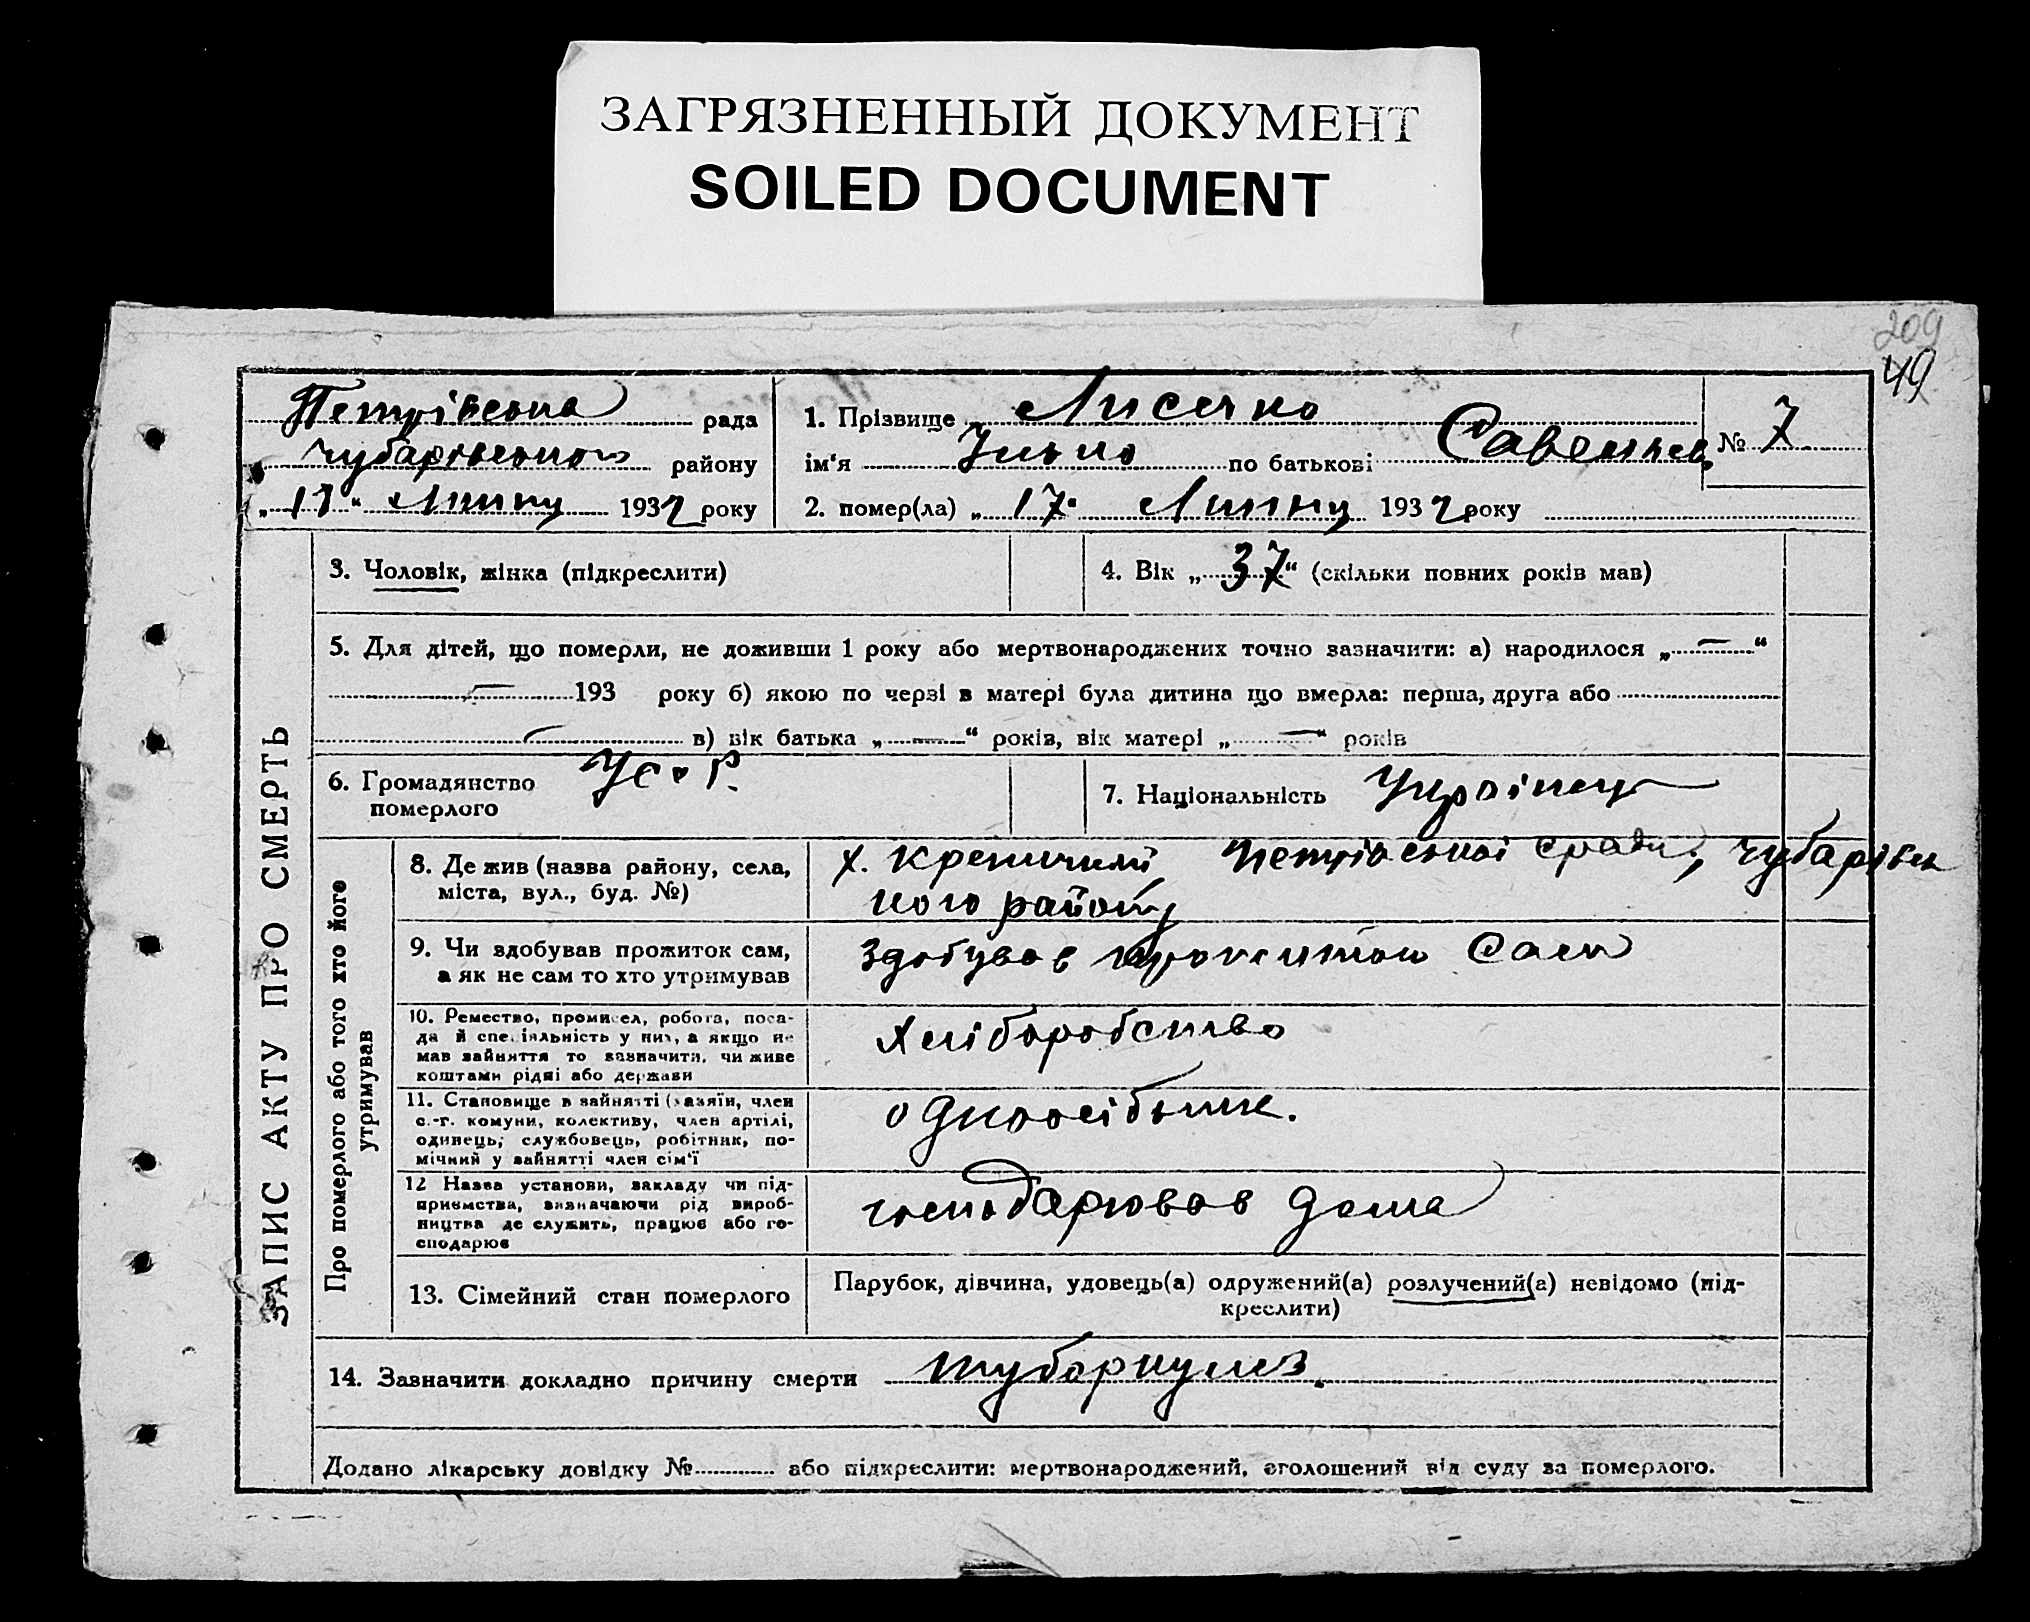 ЗАГРЯЗНЕННЫЙ ДОКУМЕНТ
SOILED DOCUMENT
209
49
Петрівська рада
Чубарівського району
„17“ Липця 1932 року
1. Прізвище Лисечко
ім'я Ілько по батькові Савельев
№ 7
2. помер(ла) „17“ Липця 1932 року
ЗАПИС АКТУ ПРО СМЕРТЬ
3. Чоловік, жінка (підкреслити)
4. Вік „37“ (скільки повних років мав)
5. Для дітей, що померли, не доживши 1 року або мертвонароджених точно зазначити: а) народилося „—“
— 193 року б) якою по черзі в матері була дитина що вмерла: перша, друга або
— в) вік батька „—“ років, вік матері „—“ років
6. Громадянство
померлого
7. Національність Українец
Про померлого або того хто його
утримував
8. Де жив (назва району, села,
міста, вул., буд. №)
х. Петрівської Чубарівсь
кого району
9. Чи здобував прожиток сам,
а як не сам то хто утримував
здобував прожиток Сам
10. Ремество, промисел, робота, поса-
да й спеціяльність у них, а якщо не
мав зайняття то зазначити, чи живе
коштами рідні або держави
Хліборобство
11. Становище в зайнятті (хазяїн, член
с.-г. комуни, колективу, член артілі,
одинець, службовець, робітник, по-
мічний у зайнятті член сім'ї
одноосібник.
12 Назва установи, закладу чи під-
приємства, зазначаючи рід вироб-
ництва де служить, працює або го-
сподарює
господарював дома
13. Сімейний стан померлого
Парубок, дівчина, удовець(а) одружений(а) розлучений(а) невідомо (під-
креслити)
14. Зазначити докладно причину смерти туберкулез.
Додано лікарську довідку № або підкреслити: мертвонароджений, оголошений від суду за померлого.